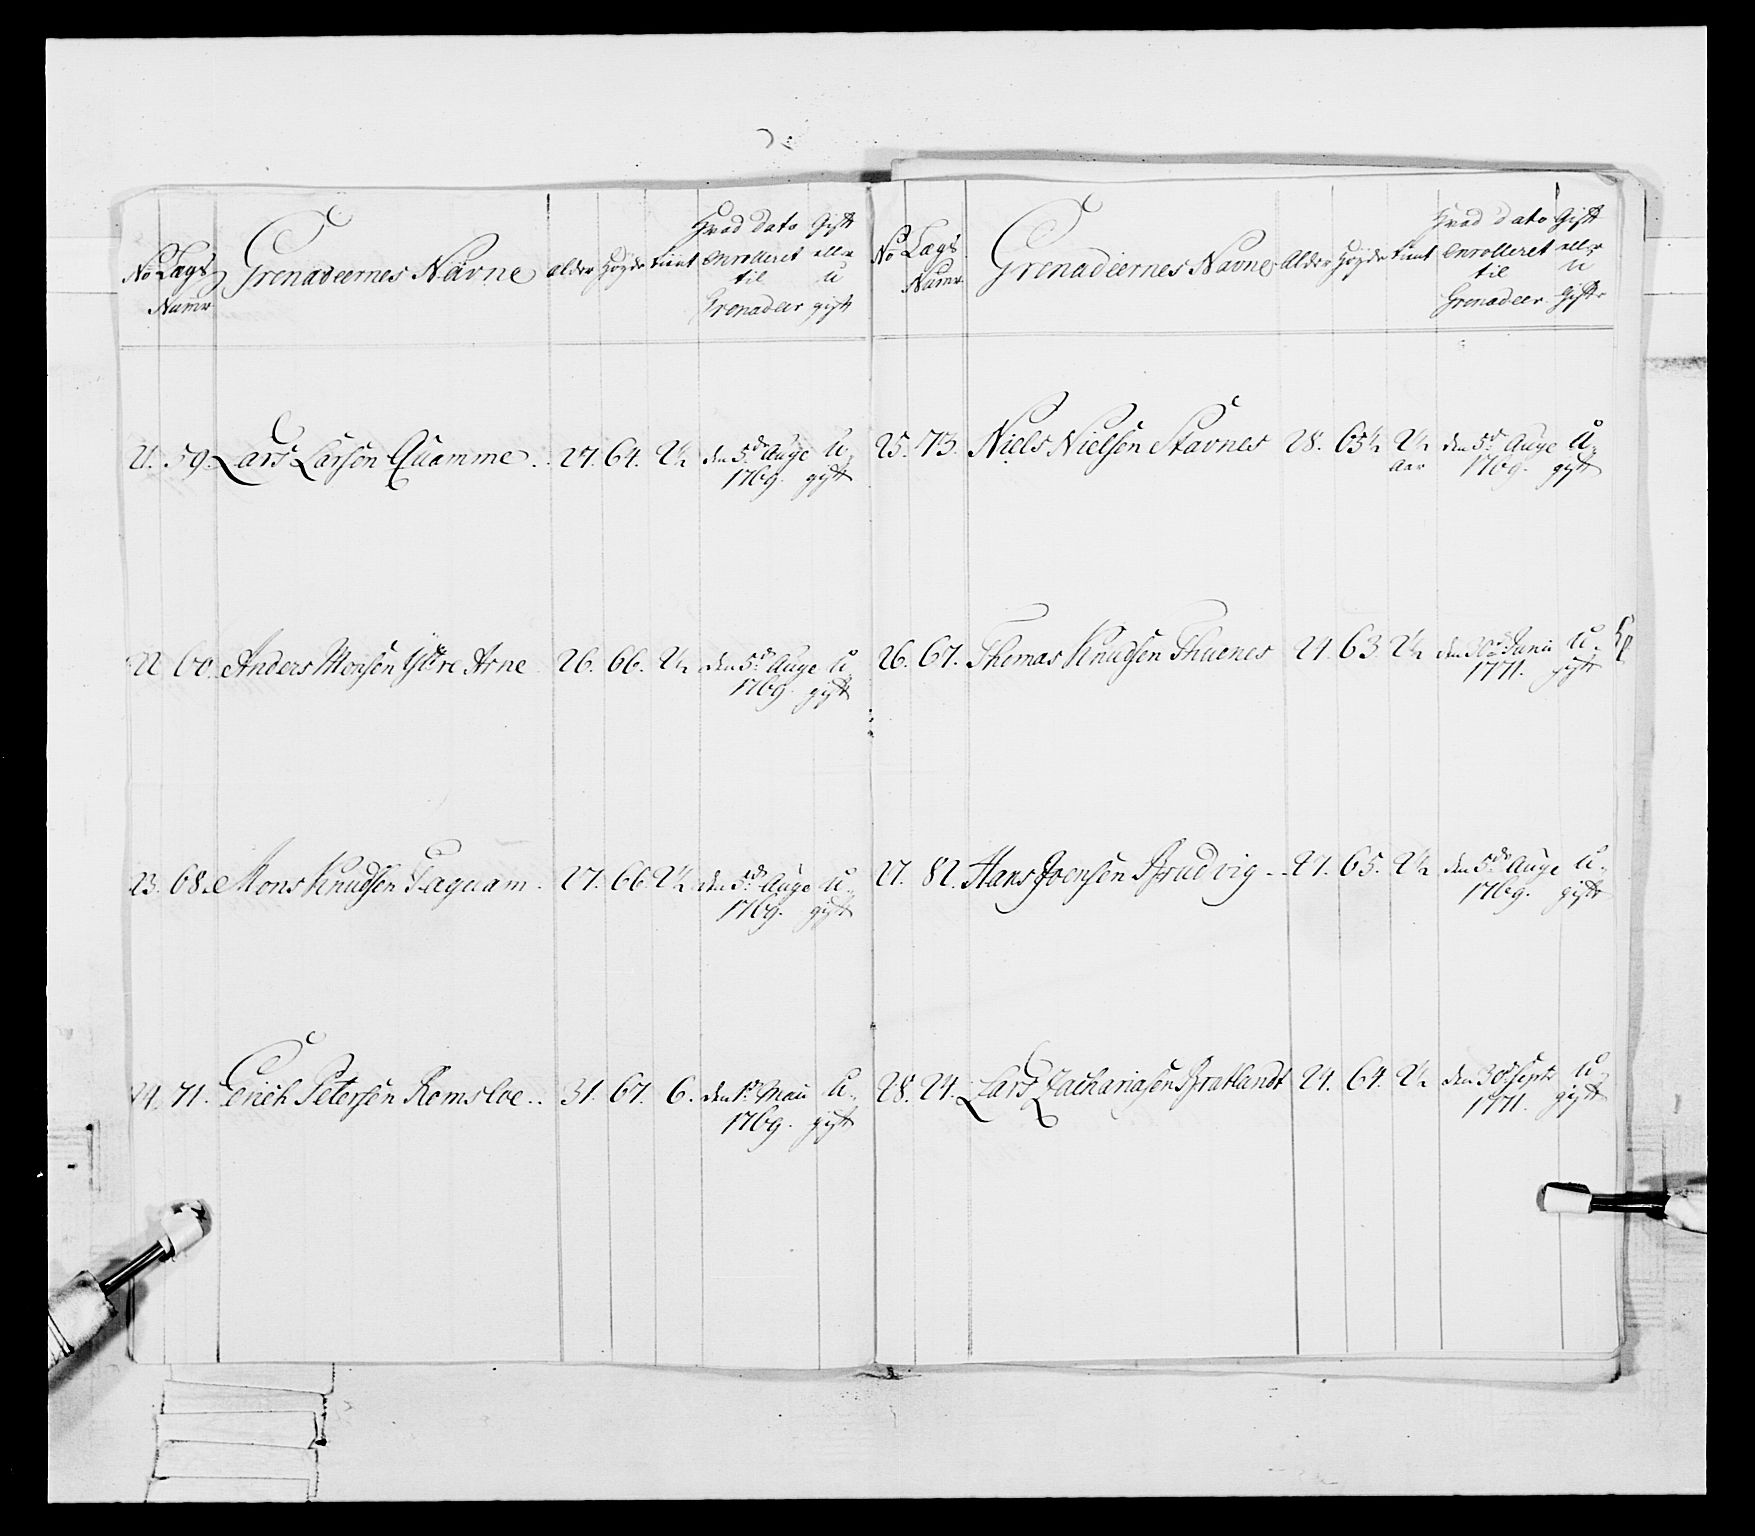 No Lægs Numr Grenadeernes Navne alder Høyde tient Hvad dato Enrolleret til Grenadeer Gift eller u gift
21. 59. Lars Larsen Quamme 27. 64. 2½ den 5te Auge U
1769. gift
22 60. Anders Monsen Ydre Arne 26. 66. 2½ den 5te Auge U
1769. gift
23. 68. Mons Knudsen Taquam 27. 66. 2½ den 5te Auge U
1769. gift
24. 71. Erich Petersen Romsloe 31. 67. 6. den 1te Maii U
1769. gift
No Lægs Numr Grenadeernes Navne Alder Høyde tient Hvad dato Enrolleret til Grenadeer Gift eller u gift
25. 73. Niels Nielsen Stavnes 28. 65½ 2½ den 5te Auge U
Aar 1769. gift
26. 67. Thomas Knudsen Thuenes 24. 63 2½ den 30te Junii U
1771. gift
27. 82. Hans Joensen Brudvig 27. 65. 2½ den 5te Auge U
1769. gift
28. 24. Lars Zachariasen Bratlandt 24. 64. 2½ den 30te Septr U
1771. gift